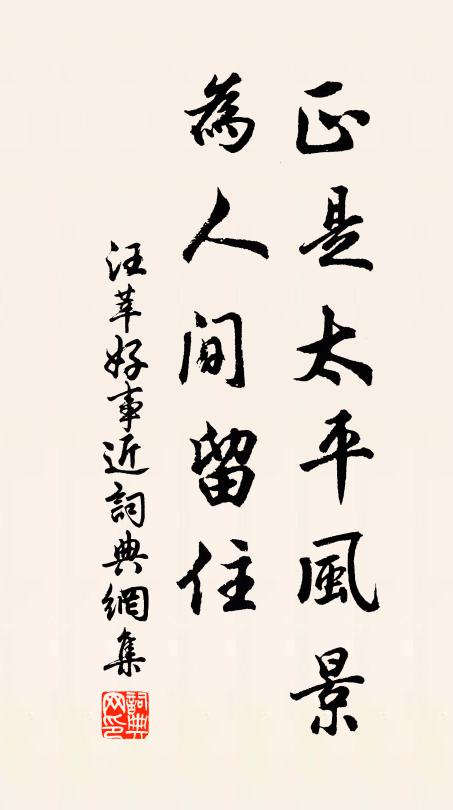 正是太平風景
為人間留住
汪莘好事近詞典網集
詞典网印